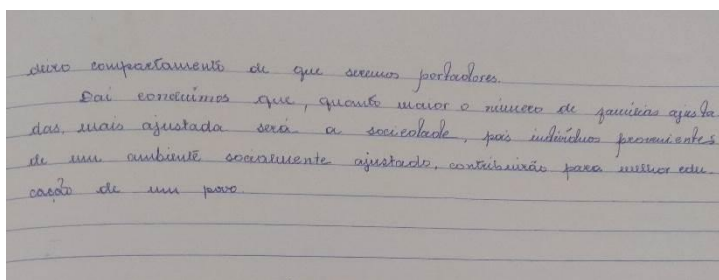 duro comportamento de que seremos portadores.
Dai concluimos que, quanto maior o número de famílias ajusta
das, mais ajustada será a sociedade, pois indivíduos provenientes
de um ambiente socialmente ajustado, contribuirão para melhor edu-
cação de um povo.